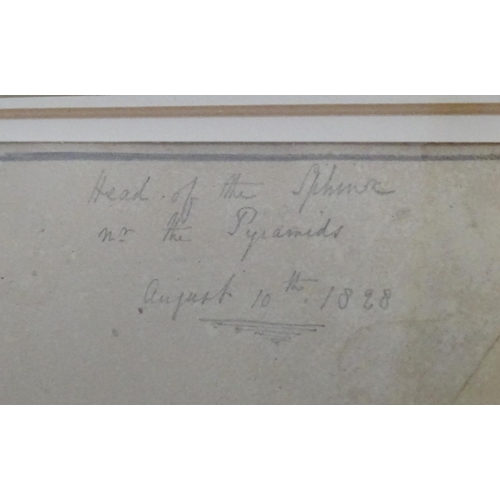 Head of the Sphinx
nr the Pyramids
August 10th 1828